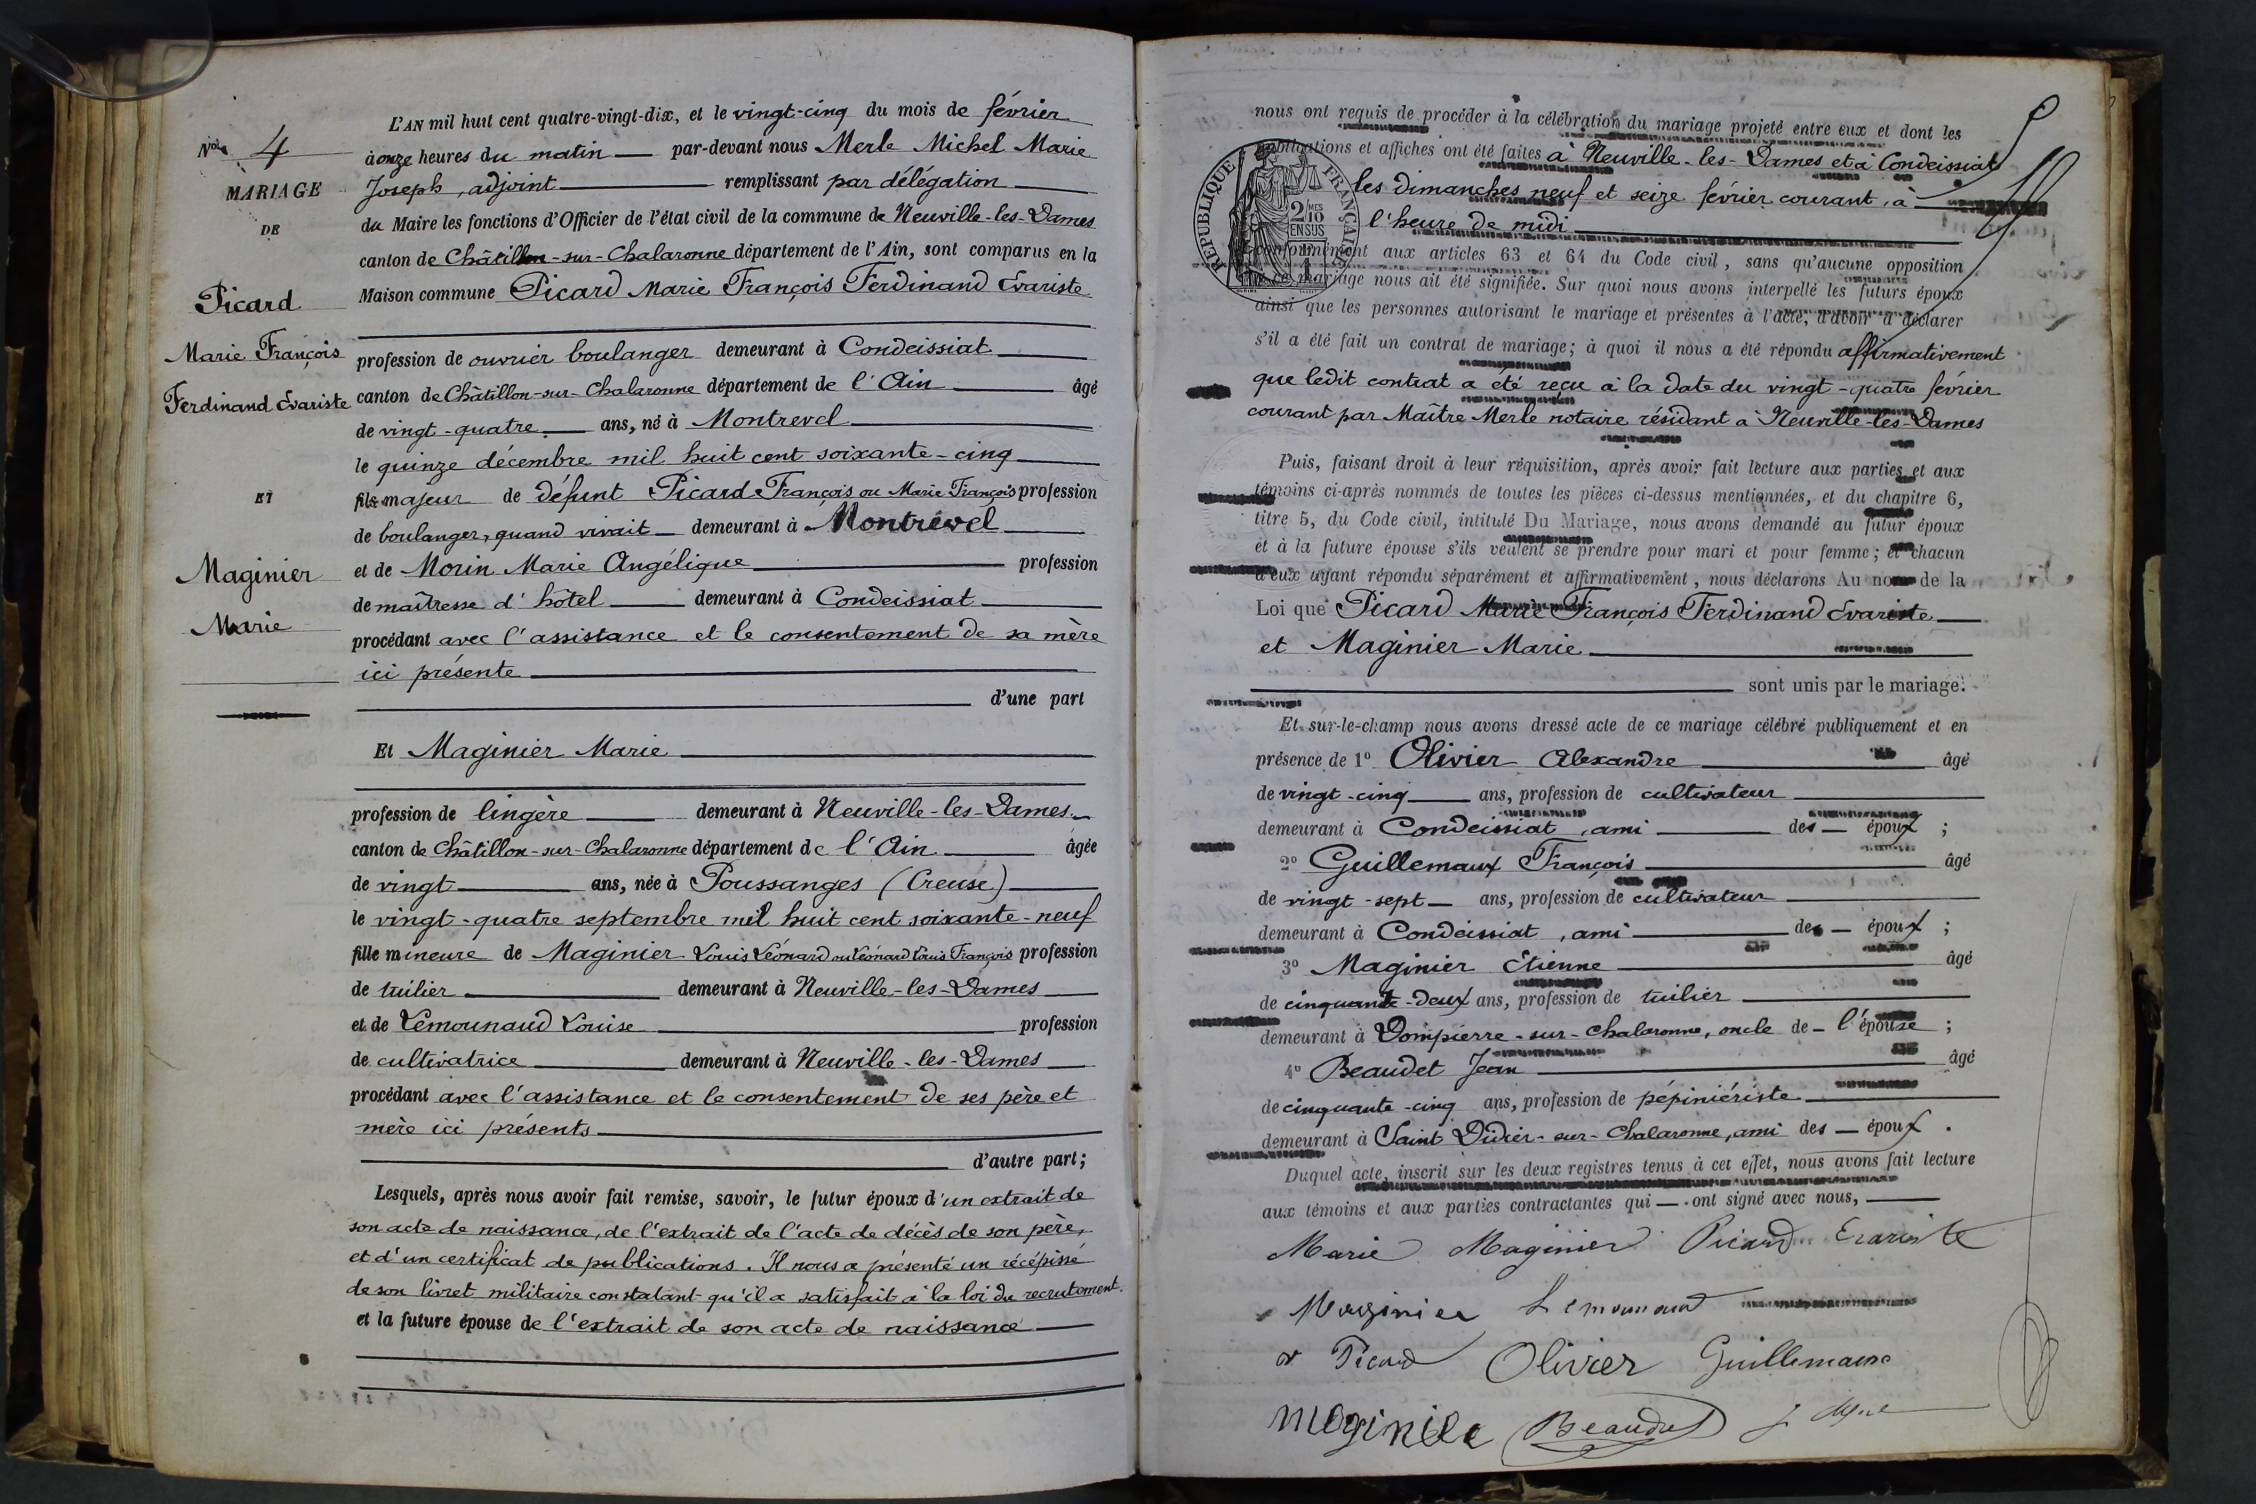 L'AN mil huit cent quatre-vingt-dix, et le vingt-cinq du mois de février
N° 4
à onze heures du matin — par-devant nous Merle Michel Marie
MARIAGE
Joseph, adjoint — remplissant par délégation
DE
du Maire les fonctions d'Officier de l'état civil de la commune de Neuville-les-Dames
canton de Châtillon-sur-Chalaronne département de l'Ain, sont comparus en la
Picard
Maison commune Picard Marie François Ferdinand Evariste
Marie François
profession de ouvrier boulanger demeurant à Condeissiat
Ferdinand Evariste
canton de Châtillon-sur-Chalaronne département de l'Ain — âgé
de vingt-quatre — ans, né à Montrevel
le quinze décembre mil huit cent soixante-cinq
ET
fils majeur de défunt Picard François ou Marie François profession
de boulanger, quand vivait — demeurant à Montrevel
Maginier
et de Morin Marie Angélique — profession
de maîtresse d'hôtel — demeurant à Condeissiat
Marie
procédant avec l'assistance et le consentement de sa mère
ici présente
d'une part
Et Maginier Marie
profession de lingère — demeurant à Neuville-les-Dames
canton de Châtillon-sur-Chalaronne département de l'Ain — âgée
de vingt — ans, née à Poussanges (Creuse)
le vingt-quatre septembre mil huit cent soixante-neuf
fille mineure de Maginier Louis Léonard ou Léonard Louis François profession
de tuilier — demeurant à Neuville-les-Dames
et de Lemounaud Louise — profession
de cultivatrice — demeurant à Neuville-les-Dames
procédant avec l'assistance et le consentement de ses père et
mère ici présents
d'autre part;
Lesquels, après nous avoir fait remise, savoir, le futur époux d'un extrait de
son acte de naissance, de l'extrait de l'acte de décès de son père,
et d'un certificat de publications. Il nous a présenté un récépissé
de son livret militaire constatant qu'il a satisfait à la loi du recrutement.
et la future épouse de l'extrait de son acte de naissance
nous ont requis de procéder à la célébration du mariage projeté entre eux et dont les
publications et affiches ont été faites à Neuville-les-Dames et à Condeissiat
les dimanches neuf et seize février courant, à
l'heure de midi
RÉPUBLIQUE FRANÇAISE
2/10 MES EN SUS
conformément aux articles 63 et 64 du Code civil, sans qu'aucune opposition
à ce mariage nous ait été signifiée. Sur quoi nous avons interpellé les futurs époux
ainsi que les personnes autorisant le mariage et présentes à l'acte, d'avoir à déclarer
s'il a été fait un contrat de mariage; à quoi il nous a été répondu affirmativement
que ledit contrat a été reçu à la date du vingt-quatre février
courant par Maître Merle notaire résidant à Neuville-les-Dames
Puis, faisant droit à leur réquisition, après avoir fait lecture aux parties et aux
témoins ci-après nommés de toutes les pièces ci-dessus mentionnées, et du chapitre 6,
titre 5, du Code civil, intitulé Du Mariage, nous avons demandé au futur époux
et à la future épouse s'ils veulent se prendre pour mari et pour femme; et chacun
d'eux ayant répondu séparément et affirmativement, nous déclarons Au nom de la
Loi que Picard Marie François Ferdinand Evariste
et Maginier Marie
sont unis par le mariage.
Et sur-le-champ nous avons dressé acte de ce mariage célébré publiquement et en
présence de 1° Olivier Alexandre — âgé
de vingt-cinq — ans, profession de cultivateur
demeurant à Condeissiat, ami — des — époux ;
2° Guillemaux François — âgé
de vingt-sept — ans, profession de cultivateur
demeurant à Condeissiat, ami — des — époux ;
3° Maginier Etienne — âgé
de cinquante-deux ans, profession de tuilier
demeurant à Dompierre-sur-Chalaronne, oncle de — l'épouse ;
4° Beaudet Jean — âgé
de cinquante-cinq ans, profession de pépiniériste
demeurant à Saint Didier-sur-Chalaronne, ami des — époux.
Duquel acte, inscrit sur les deux registres tenus à cet effet, nous avons fait lecture
aux témoins et aux parties contractantes qui — ont signé avec nous,
Marie Maginier Picard Evariste
Maginier Lemounaud
Picard Olivier Guillemaux
Maginier Beaudet